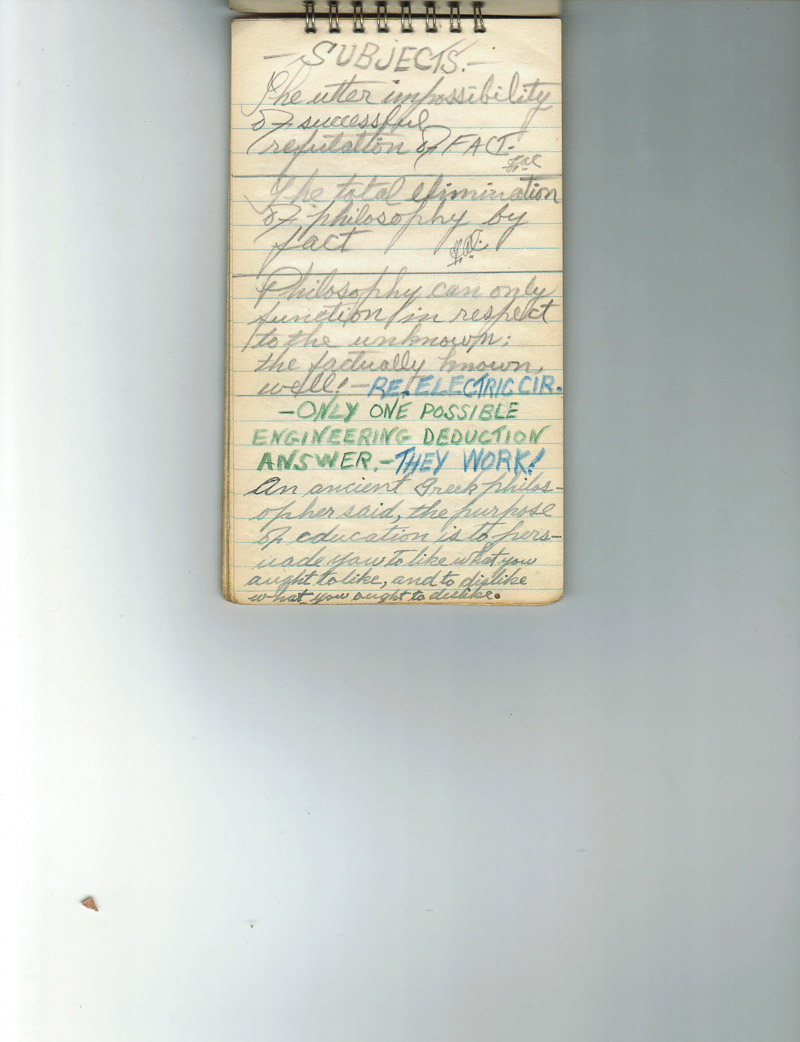 — SUBJECTS. —
The utter impossibility
of successful
refutation of FACT.
The total elimination
of philosophy by
fact
Philosophy can only
function in respect
to the unknown;
the factually known,
well! — RE. ELECTRIC CIR.
— ONLY ONE POSSIBLE
ENGINEERING DEDUCTION
ANSWER. — THEY WORK!
An ancient Greek philos-
opher said, the purpose
of education is to pers-
uade you to like what you
aught to like, and to dislike
what you ought to dislike.